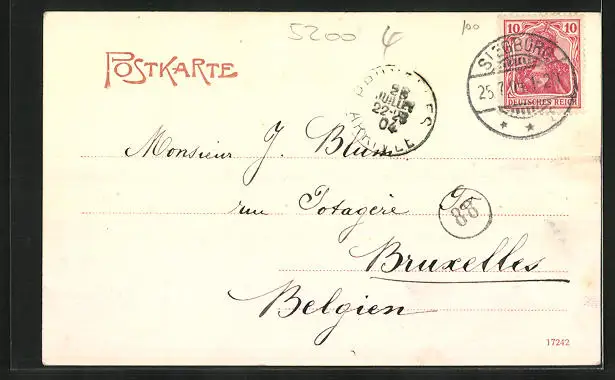 5200
100
10 10
DEUTSCHES REICH
SIEGBURG
25.7.04. 1-2 N
POSTKARTE
BRUXELLES
25
JUILLET
22-23
04
ARRIVÉE
Monsieur J. Blum
rue Potagère
88
Bruxelles
Belgien
17242